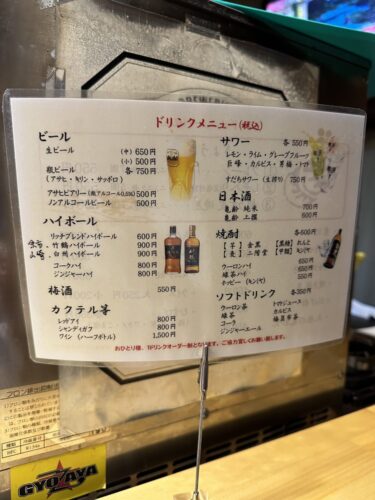 ドリンクメニュー(税込)
ビール
生ビール (中) 650円
(小) 500円
瓶ビール 各 750円
(アサヒ・キリン・サッポロ)
アサヒビアリー(微アルコール0.5%) 500円
ノンアルコールビール 500円
ハイボール
リッチブレンドハイボール 600円
余市・竹鶴ハイボール 900円
山崎・白州ハイボール 900円
コークハイ 800円
ジンジャーハイ 800円
梅酒 550円
カクテル等
レッドアイ 800円
シャンディガフ 800円
ワイン (ハーフボトル) 1,500円
サワー 各 550円
レモン・ライム・グレープフルーツ
巨峰・カルピス・男梅・トマト
すだちサワー (生搾り) 750円
日本酒
亀齢 純米 700円
亀齢 上撰 600円
焼酎 各600円
【芋】金黒 【黒糖】れんと
【麦】二階堂 【甲類】キンミヤ
ウーロンハイ
緑茶ハイ
ホッピー (キンミヤ)
ソフトドリンク 各350円
ウーロン茶 トマトジュース
緑茶 カルピス
コーラ
ジンジャーエール
おひとり様、1ドリンクオーダー制となります。ご協力宜しくお願い致します。
GYOAYA